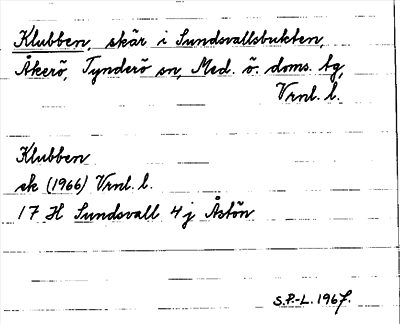 Klubben, skär i Sundsvallsbukten,
Åkerö, Tynderö sn, Med. ö. doms. tg,
Vrnl. l.
Klubben
ek (1966) Vrnl. l.
17 H Sundsvall 4 j Åstön
S.P.-L. 1967.